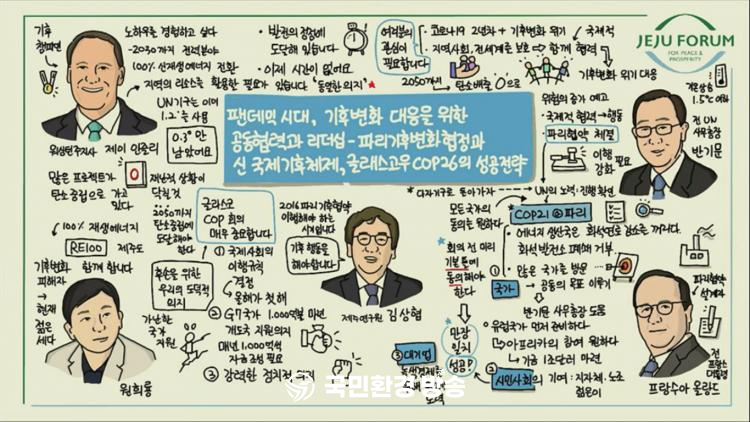 JEJU FORUM
FOR PEACE &
PROSPERITY
팬데믹 시대, 기후변화 대응을 위한
공동협력과 리더십 - 파리기후변화협정과
신 국제기후체제, 글래스고우 COP26의 성공전략
기후
챔피언
노하우를 경험하고 싶다
-2030까지 전력분야
100% 신재생에너지 전환
지역의 리소스를 활용한 필요가 있습니다 "동일한 의지"
UN기구는 이미
1.2°를 사용
0.3°만
남았어요
워싱턴주지사 제이 인즐리
많은 프로젝트가
탄소중립으로 가고
있다
재난적 상황이
닥칠것
2050까지
탄소중립에
도달해야
한다
빈곤의 정점에
도달해 있습니다
이제 시간이 없어요
여러분의
관심이
필요합니다
코로나19 2년차 + 기후변화 위기
지역사회, 전세계를 보호 → 함께 협력
국제적
기후변화 위기 대응
2050까지
탄소배출 0으로
위험의 증가 예고
국제적 협력 → 행동
파리협약 체결
이행 필요
강화
1.5℃ 이하
전 UN
사무총장
반기문
다자기구로 돌아가자
UN의 노력·진행확연
글라스고
COP 회의
매우 중요합니다
① 국제사회의
이행규칙
결정
올해가 첫 해
② G7국가 1,000억불 마련
개도국 지원의지
매년 1,000억씩
자금 조성 필요
③ 강력한 정치적
2016 파리기후협약
이행해야 하는
시기입니다
기후 행동을
해야합니다
제주연구원 김상협
100% 재생에너지
RE100
제주도
함께 합니다
기후변화
피해자
→
현재
젊은
세대
후손을 위한
우리의 도덕적
의지
가난한
국가
지원
원희룡
모든 국가의
동의를 원하다
회의 전 미리
기본틀에
동의해야
한다
만장
일치
성공!
COP21 @파리
에너지 생산국은 화석연료 감소를 꺼리다.
화석 발전소 폐쇄 거부
① 국가
많은 국가를 방문
→ 공동의 목표 이루기
반기문 사무총장 도움
유럽국가 먼저 준비하다
아프리카의 참여 원하다
기금 1조달러 마련
② 시민사회의 기여 : 지자체, 노조
젊은이
③ 대기업
녹색경제
노력
파리협약
설계자
전
프랑스
대통령
프랑수아 올랑드
국민환경방송